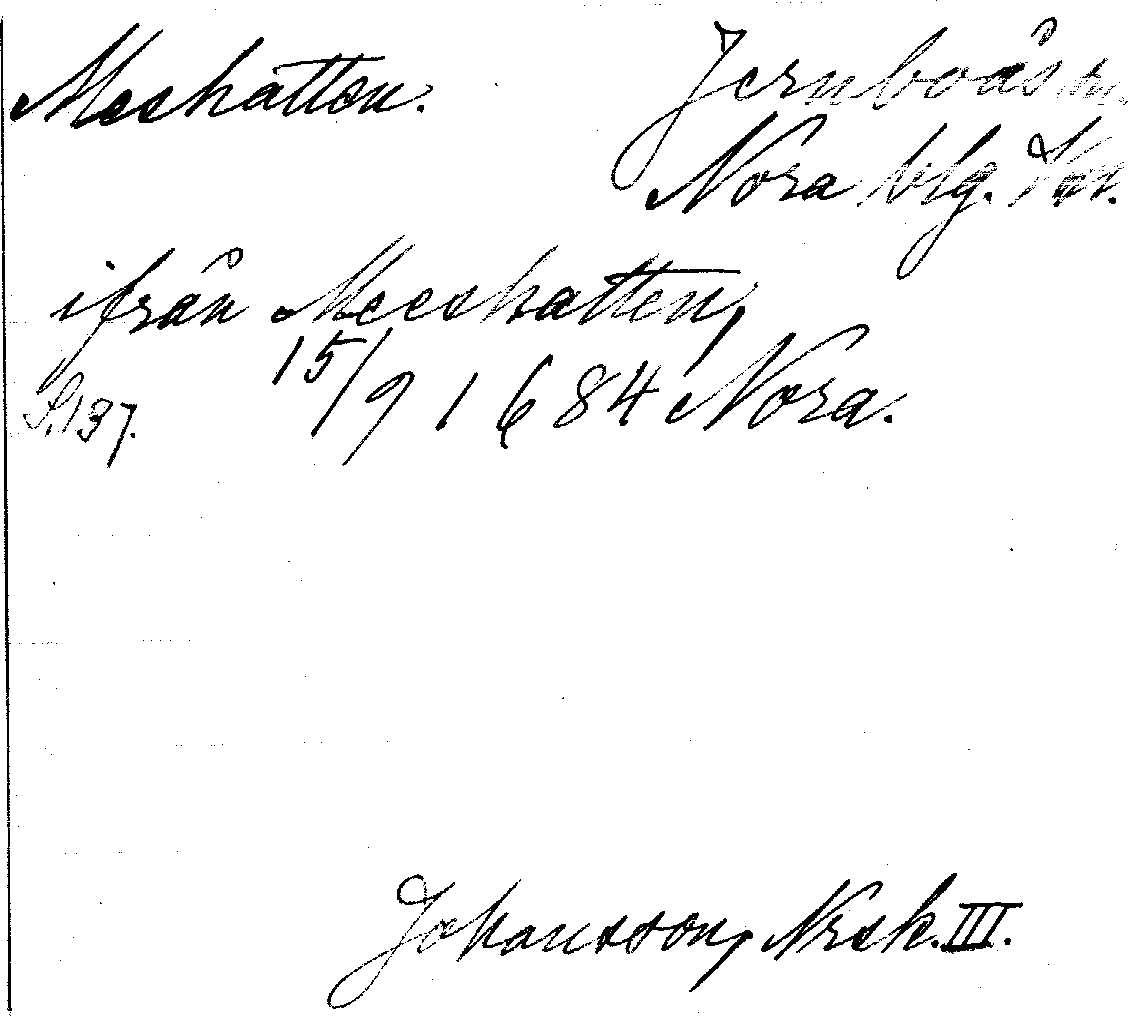 Meshatten. Jernboås sn.
Nora blg.
ifrån Meeshatten,
S. 137. 15/9 1684 Nora.
Johansson, Nrsk. III.